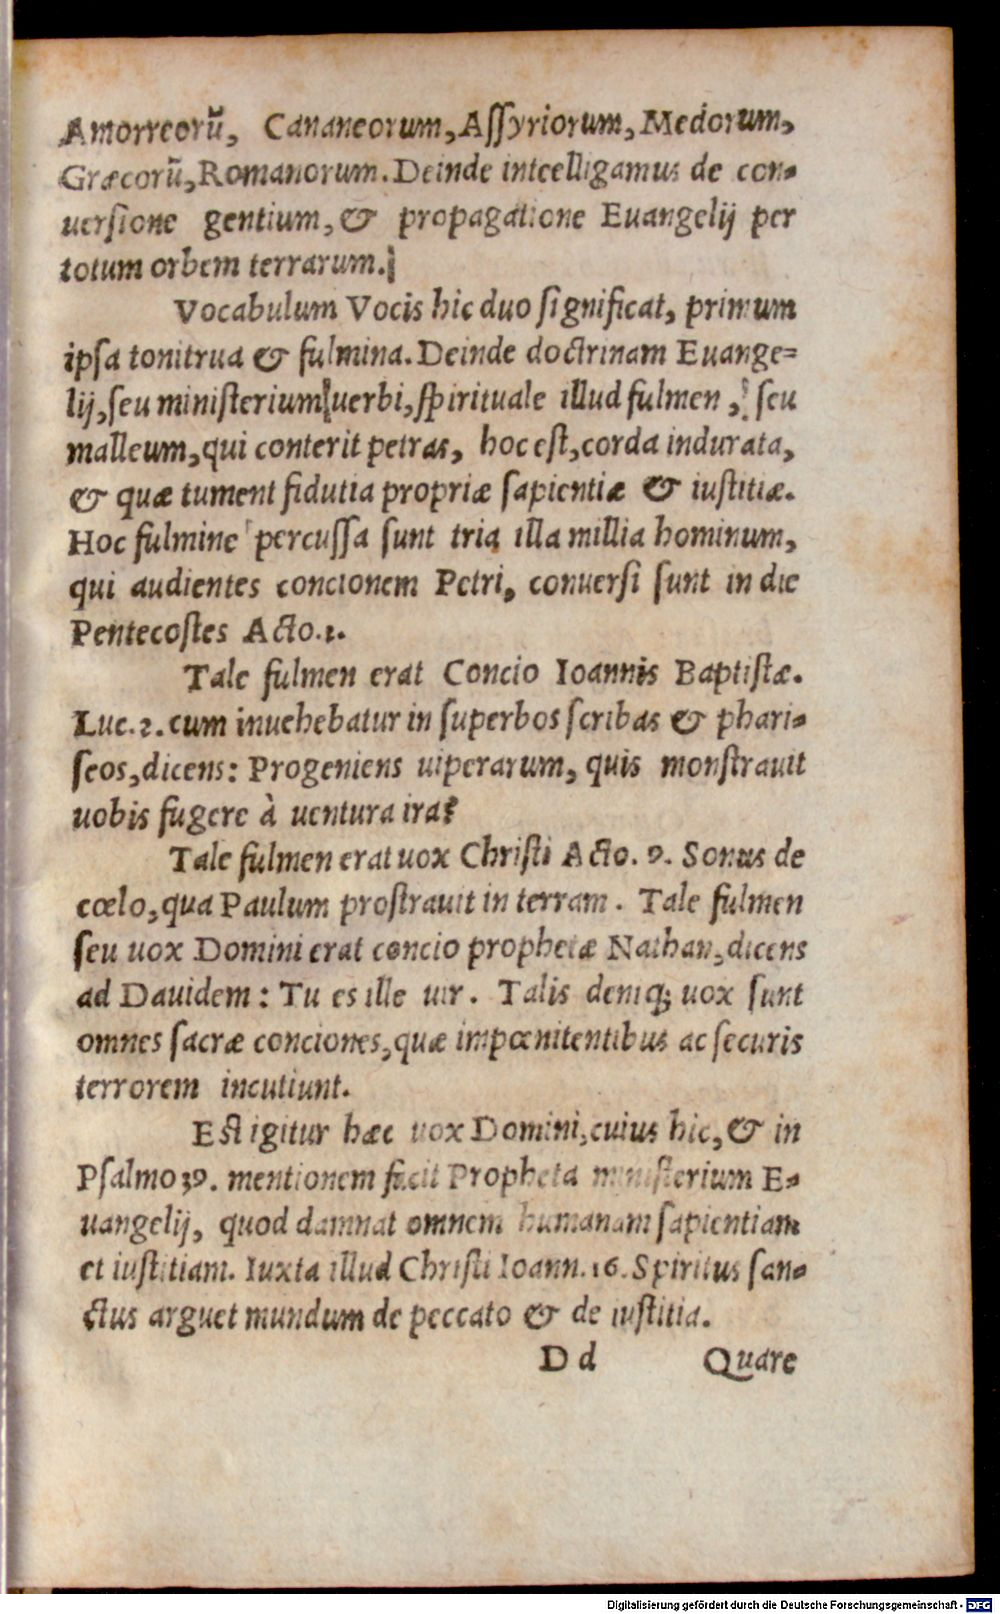 Amorreorũ, Cananeorum, Assyriorum, Medorum,
Græcorũ, Romanorum. Deinde intelligamus de con-
uersione gentium, & propagatione Euangelij per
totum orbem terrarum.
Vocabulum Vocis hic duo significat, primum
ipsa tonitrua & fulmina. Deinde doctrinam Euange=
lij, seu ministerium uerbi, spirituale illud fulmen, seu
malleum, qui conterit petras, hoc est, corda indurata,
& quæ tument fidutia propriæ sapientiæ & iustitiæ.
Hoc fulmine percussa sunt tria illa millia hominum,
qui audientes concionem Petri, conuersi sunt in die
Pentecostes Acto.2.
Tale fulmen erat Concio Ioannis Baptistæ.
Luc.2. cum inuehebatur in superbos scribas & phari-
seos, dicens: Progeniens uiperarum, quis monstrauit
uobis fugere à uentura ira?
Tale fulmen erat uox Christi Acto. 9. Sonus de
cœlo, qua Paulum prostrauit in terram. Tale fulmen
seu uox Domini erat concio prophetæ Nathan, dicens
ad Dauidem: Tu es ille uir. Talis deniq; uox sunt
omnes sacræ conciones, quæ impœnitentibus ac securis
terrorem incutiunt.
Est igitur hæc uox Domini, cuius hic, & in
Psalmo 39. mentionem fecit Propheta ministerium E-
uangelij, quod damnat omnem humanam sapientiam
et iustitiam. Iuxta illud Christi Ioann.16. Spiritus san-
ctus arguet mundum de peccato & de iustitia.
D d Quare
Digitalisierung gefördert durch die Deutsche Forschungsgemeinschaft - DFG